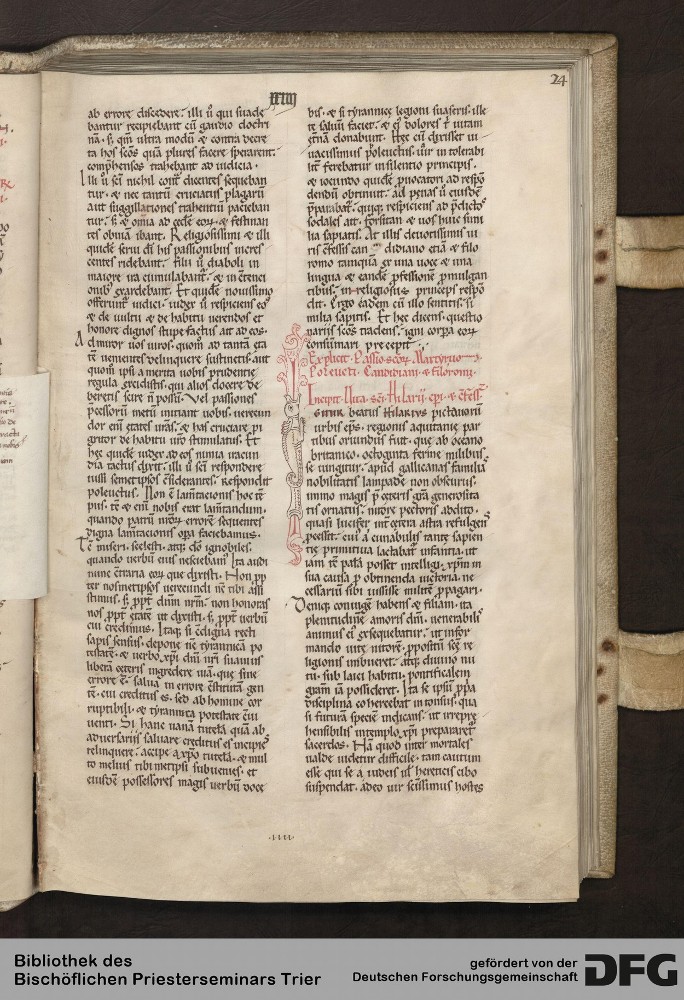 24
xxiiij
ab errore discedere. illi ů qui suade
bantur recipiebant cū gaudio doctri
nā. s; qm ultra modū & contra decre
ta hos scōs quā plures facere sperarent.
comphensos trahebant ad iudicia.
Illi ů sci nichil cont dicentes sequeban
tur. & nec tantū cruciatus plagarū
aut suggillationes trahentiū pacieban
tur. s; & omia ad cedē eorꝝ & festinan
tes obuiā ibant. Religiosissimi & illi
quidē serui di his passionibus incres
centes ridebant. filii ů diaboli in
maiore ira cumulabant.
onib exardebant. Et quidē nouissimo
offerunt iudici. iudex ů respiciens eos
& de uultu & de habitu uerendos et
honore dignos stupefactus ait ad eos.
Admiror uos uiros. quom ad tantā eta
tē uenientes delinquere sustinetis. aut
quom ipsi a merita uobis prudentie
regula excidistis. qui alios docere de
beretis
pcessorū metū iniciant uobis. uerecun
dior enī etates urās. & has cruciare pi
gritor de habitu uro stimulatus. Et
hec quidē iudex ad eos nimia iracun
dia tactus dixit. illi ů sci respondere
iussi semetipsos cſiderantes. Respondit
poleuctus. Non ē lamtacionis hoc tē
pus. tē & enī nobis erat lamtandum.
quando patrū nrorꝝ errorē sequentes
digna lamtacionis opa faciebamus.
Tē miseri. scelesti. atqꝫ dō ignobiles.
quando uerbū eius nesciebam. Ita audi
nunc cēraria eorꝝ que dixisti. Non pp
ter nosmetipsos uerecundi nē tibi assi
stimus. s; ppt dnm nrm. non honoras
nos ppt etatē ut dixisti. s; ppt uerbū
cui credimus. Itaqꝫ si cdigna recti
sapis sensus. depone tiē tyrannicā po
testatē. & uerbo xpi dni nri suauius
liberā ceteris ingredere uiā. que sine
errore ē. saluā in errore cstitutā gen
tē. cui creditus es. sed ab homine cor
ruptibili. & tyrannica potestate cui
uenti. Si hanc uanā tutelā quā ab
aduersariis saluare creditus es incipies
relinquere. accipe a xpo tutelā. & mul
to melius tibimetipsi subuenies. et
eiusdē possessores magis uerbū doce
bis. & si tyrannice legioni suaseris. ille
te saluū faciet. & ei dolores t uitam
etnā donabunt. Hec cū dixisset ui
uacissimus poleuctus. uir intolerabi
lit ferebatur insilentio principis.
& iocundo quidē puocatori ad respō
dendū obtinuit. ad penas ů eiusdē
pparabat. quiqꝫ respiciens ad pdictos
sociales ait. forsitan & uos huic simi
lia sapiatis. At illis deuotissimus ui
ris cfessis can didiano etiā & filo
romo tamquā ex una uoce & una
lingua & eandē pfessionē pmulgan
tibus. in religiosus princeps respō
dit. Ergo eadem cū illo sentitis. si
milia sapitis. Et hec dicens. questio
nariis scōs tradens. igni corpa eorꝝ
consūmari precepit.
Explicit Passio scorꝝ Martyruꝫ
Poleucti. Candidiani. & filoromi.
Incipit Uita sci Hilarij epi. & cfess.
Igitur beatus hilarius pictauorū
urbis eps. regionis aquitanie par
tibus oriundus fuit. que ab oceano
britannico. octoginta ferme milibus
se iungitur. apud gallicanas familia
nobilitatis lampade non obscurus.
immo magis p ceteris gra generosita
tis ornatus. nitore pectoris addito.
quasi lucifer int cetera astra refulgens
pcessit. cui a cunabulis tante sapien
tie primitiua lactabat infantia. ut
iam tē potā posset intelligi. xpm in
sua causa p obtinenda uictoria. ne
cessariū sibi iussisse militē ppagari.
Deniqꝫ coniugē habens & filiam. ita
plenitudinē amoris dni. uenerabilis
animus ei exsequebatur. ut infor
mando uite nitorē. ppositū secꝫ re
ligionis imbueret. atqꝫ diuino nu
tu. sub laici habitu. pontificalem
gram iā possideret. Ita se ipsū ppa
disciplina cohercebat intonsus. qua
si futurā speciē indicans. ut irrepre
hensibilis intemplo xpi prepararet
sacerdos. Hā quod inter mortales
ualde uidetur difficile. tam cautum
esse qui se a iudeis ul hereticis cibo
suspendat. adeo uir scissimus hostes
·IIII·
Bibliothek des
Bischöflichen Priesterseminars Trier
gefördert von der
Deutschen Forschungsgemeinschaft
DFG